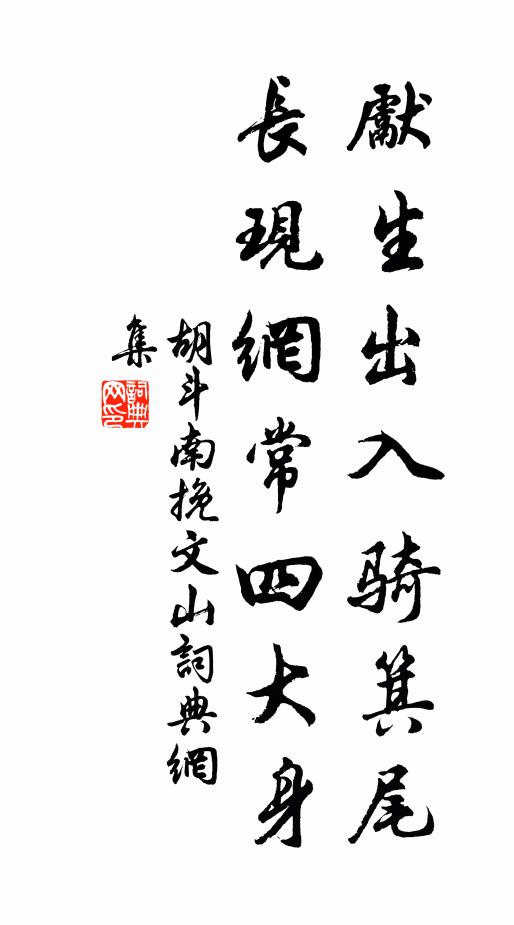 獻生出入騎箕尾
長現網常四大身
胡斗南挽文山詞典網
集
詞典
网印